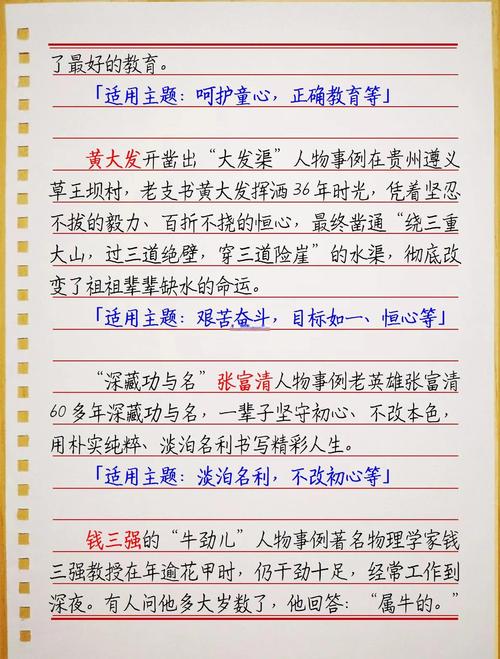 了最好的教育。
「适用主题：呵护童心，正确教育等」
黄大发开凿出“大发渠”人物事例在贵州遵义
草王坝村，老支书黄大发挥洒36年时光，凭着坚忍
不拔的毅力、百折不挠的恒心，最终凿通“绕三重
大山，过三道绝壁，穿三道险崖”的水渠，彻底改
变了祖祖辈辈缺水的命运。
「适用主题：艰苦奋斗，目标如一、恒心等」
“深藏功与名”张富清人物事例老英雄张富清
60多年深藏功与名，一辈子坚守初心、不改本色，
用朴实纯粹、淡泊名利书写精彩人生。
「适用主题：淡泊名利，不改初心等」
钱三强的“牛劲儿”人物事例著名物理学家钱
三强教授在年逾花甲时，仍干劲十足，经常工作到
深夜。有人问他多大岁数了，他回答：“属牛的。”